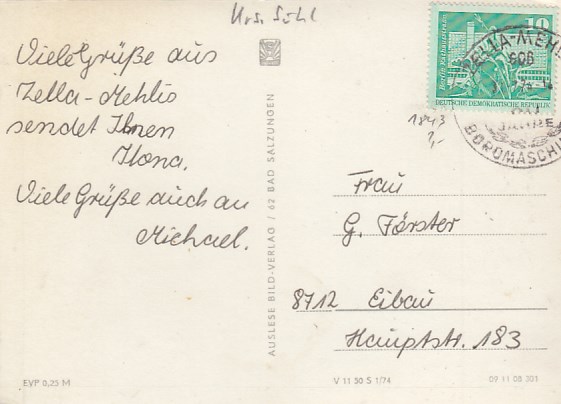 Viele Grüße aus
Zella-Mehlis
sendet Ihnen
Ilona.
Viele Grüße auch an
Michael.
AUSLESE BILD-VERLAG / 62 BAD SALZUNGEN
10
Berlin Rathausstrasse
DEUTSCHE DEMOKRATISCHE REPUBLIK
ZELLA-MEHL
606
BÜROMASCHI
1843
?,-
Frau
G. Förster
8712 Eibau
Hauptstr. 183
EVP 0,25 M
V 11 50 S 1/74
09 11 08 301